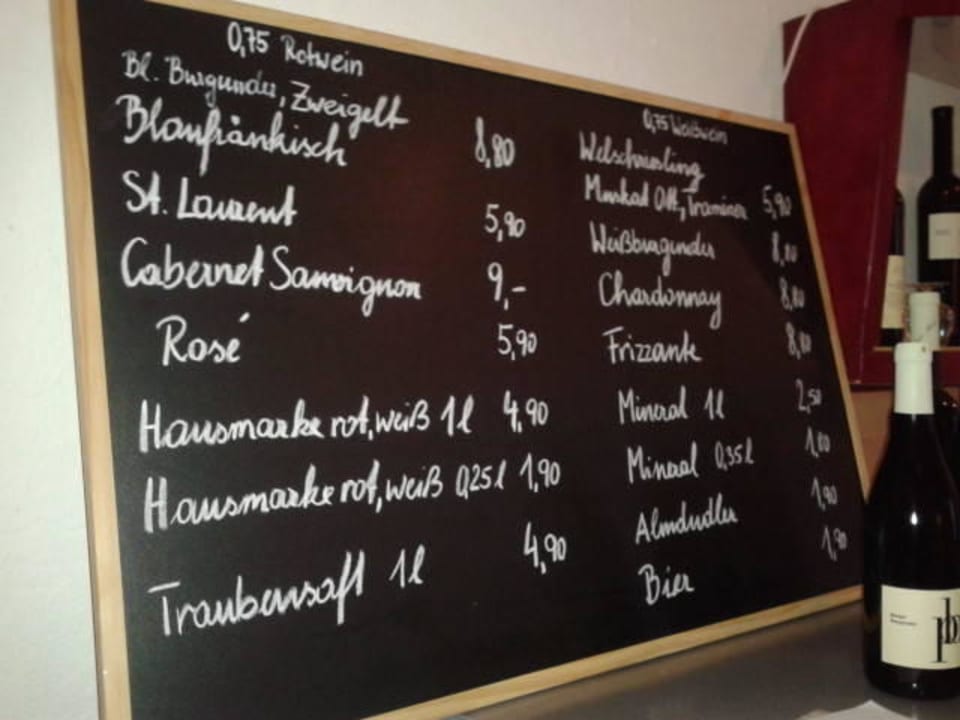 0,75 Rotwein
Bl. Burgunder, Zweigelt
Blaufränkisch 8,80
St. Laurent 5,90
Cabernet Sauvignon 9,-
Rosé 5,90
Hausmarke rot, weiß 1l 4,90
Hausmarke rot, weiß 0,25l 1,90
Traubensaft 1l 4,90
0,75 Weißwein
Welschriesling
Muskad Ott., Traminer 5,90
Weißburgunder 8,80
Chardonnay 8,80
Frizzante 8,80
Mineral 1l 2,50
Mineral 0,35l 1,80
Almdudler 1,90
Bier 1,90